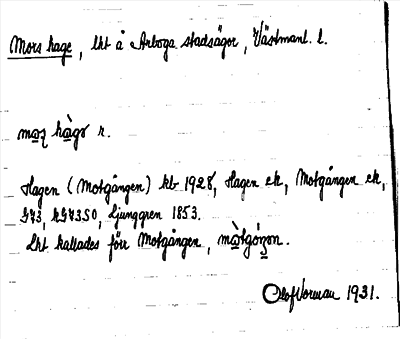 Mors hage, lht å Arboga stadsägor, Västmanl. l.
hàgɘ r.
Hagen (Motgången) kb 1928, Hagen ek, Motgången ek,
G73, KG73SO, Ljunggren 1853.
Lht kallades förr Motgången,
Olof Norman 1931.